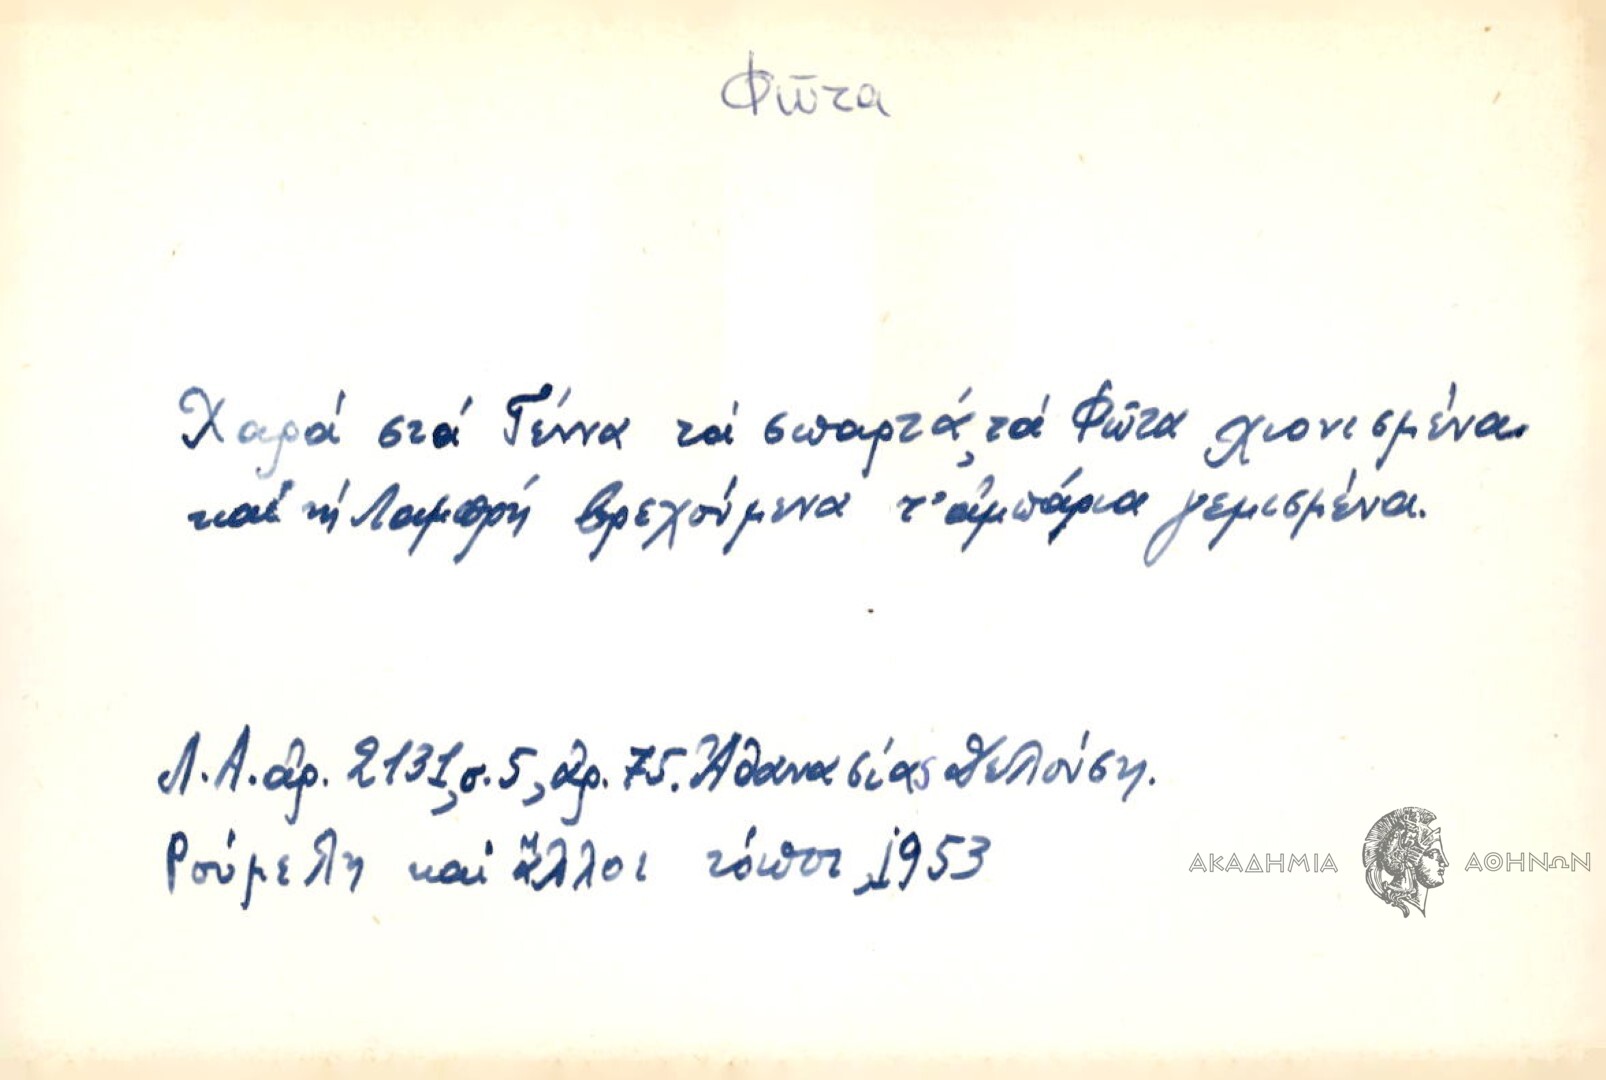 Φῶτα
Χαρά στά Γέννα τά σπαρτά, τά Φῶτα χιονισμένα
καί τή Λαμπρή βρεχούμενα τ' ἀμπάρια γεμισμένα.
Λ.Α. ἀρ. 2131, σ. 5, ἀρ. 75. Ἀθανασίας
Ρούμελη καί ἄλλοι τόποι, 1953
ΑΚΑΔΗΜΙΑ ΑΘΗΝΩΝ